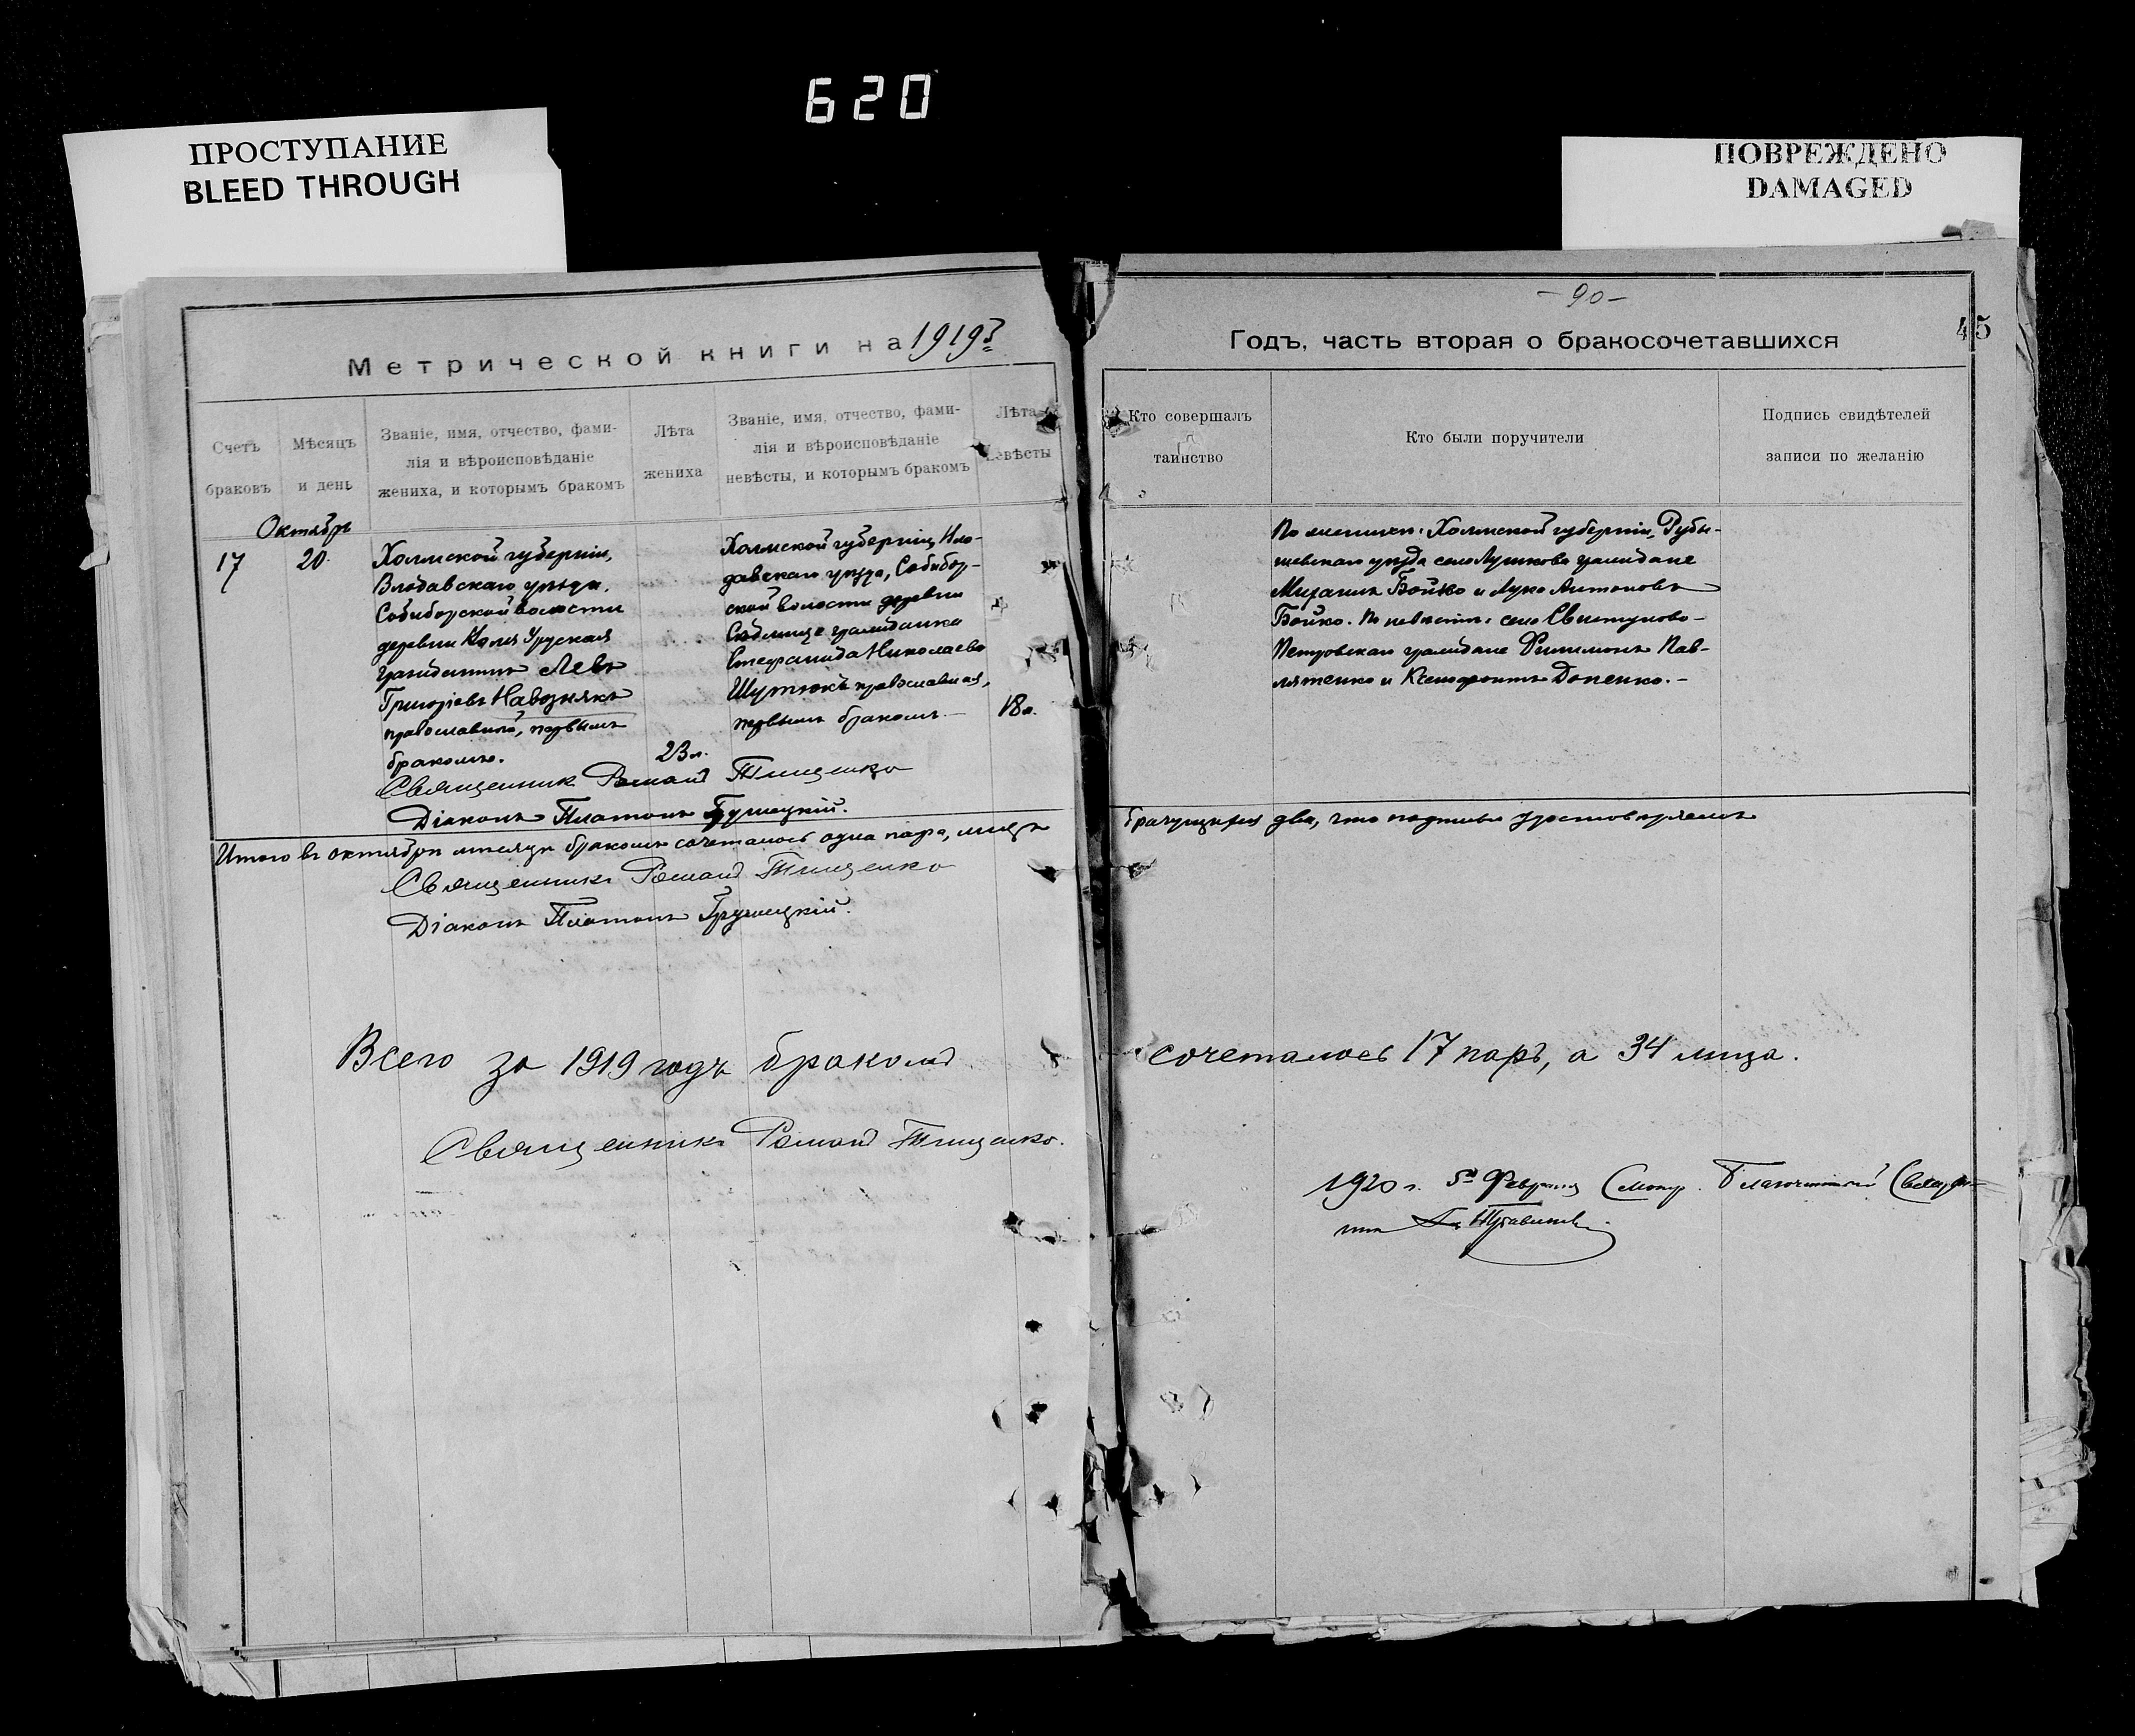 620
ПРОСТУПАНИЕ
BLEED THROUGH
ПОВРЕЖДЕНО
DAMAGED
Метрической книги на 1919 г.
Счетъ браковъ
Мѣсяцъ и день
Званіе, имя, отчество, фами-
лія и вѣроисповѣданіе
жениха, и которымъ бракомъ
Лѣта жениха
Званіе, имя, отчество, фами-
лія и вѣроисповѣданіе
невѣсты, и которымъ бракомъ
Лѣта невѣсты
Октябрь
17
20.
Холмской губерніи,
Влодавскаго уѣзда,
Собиборской волости
деревни
гражданинъ Левъ
Григоріевъ Навознякъ
православный, первымъ
бракомъ.
23 л.
Холмской губерніи, Вло-
давскаго уѣзда, Собибор-
ской волости деревни
гражданка
Стефанида Николаева
Шутюкъ православная,
первымъ бракомъ.
18 л.
Священникъ Роман Тищенко
Діаконъ Платонъ Грушецкій.
Итого въ октябрѣ мѣсяцѣ бракомъ сочеталось одна пара, лицъ
Священникъ Роман Тищенко
Діаконъ Платонъ Грушецкій.
Всего за 1919 годъ бракомъ
Священникъ Роман Тищенко.
- 90 -
45
Годъ, часть вторая о бракосочетавшихся
Кто совершалъ
таинство
Кто были поручители
Подпись свидѣтелей
записи по желанію
По женихѣ: Холмской губерніи,
уѣзда село граждане
Бойко и Лука Антоновъ
Бойко. По невѣстѣ: село Свистуново-
Петровскаго граждане Филимонъ Пав-
ляченко и Ксенофонтъ Доненко. -
брачущихся два, что подписью удостовѣряемъ
сочеталось 17 паръ, а 34 лица.
1920 г. 5 Февраля Смотр. Благочинный